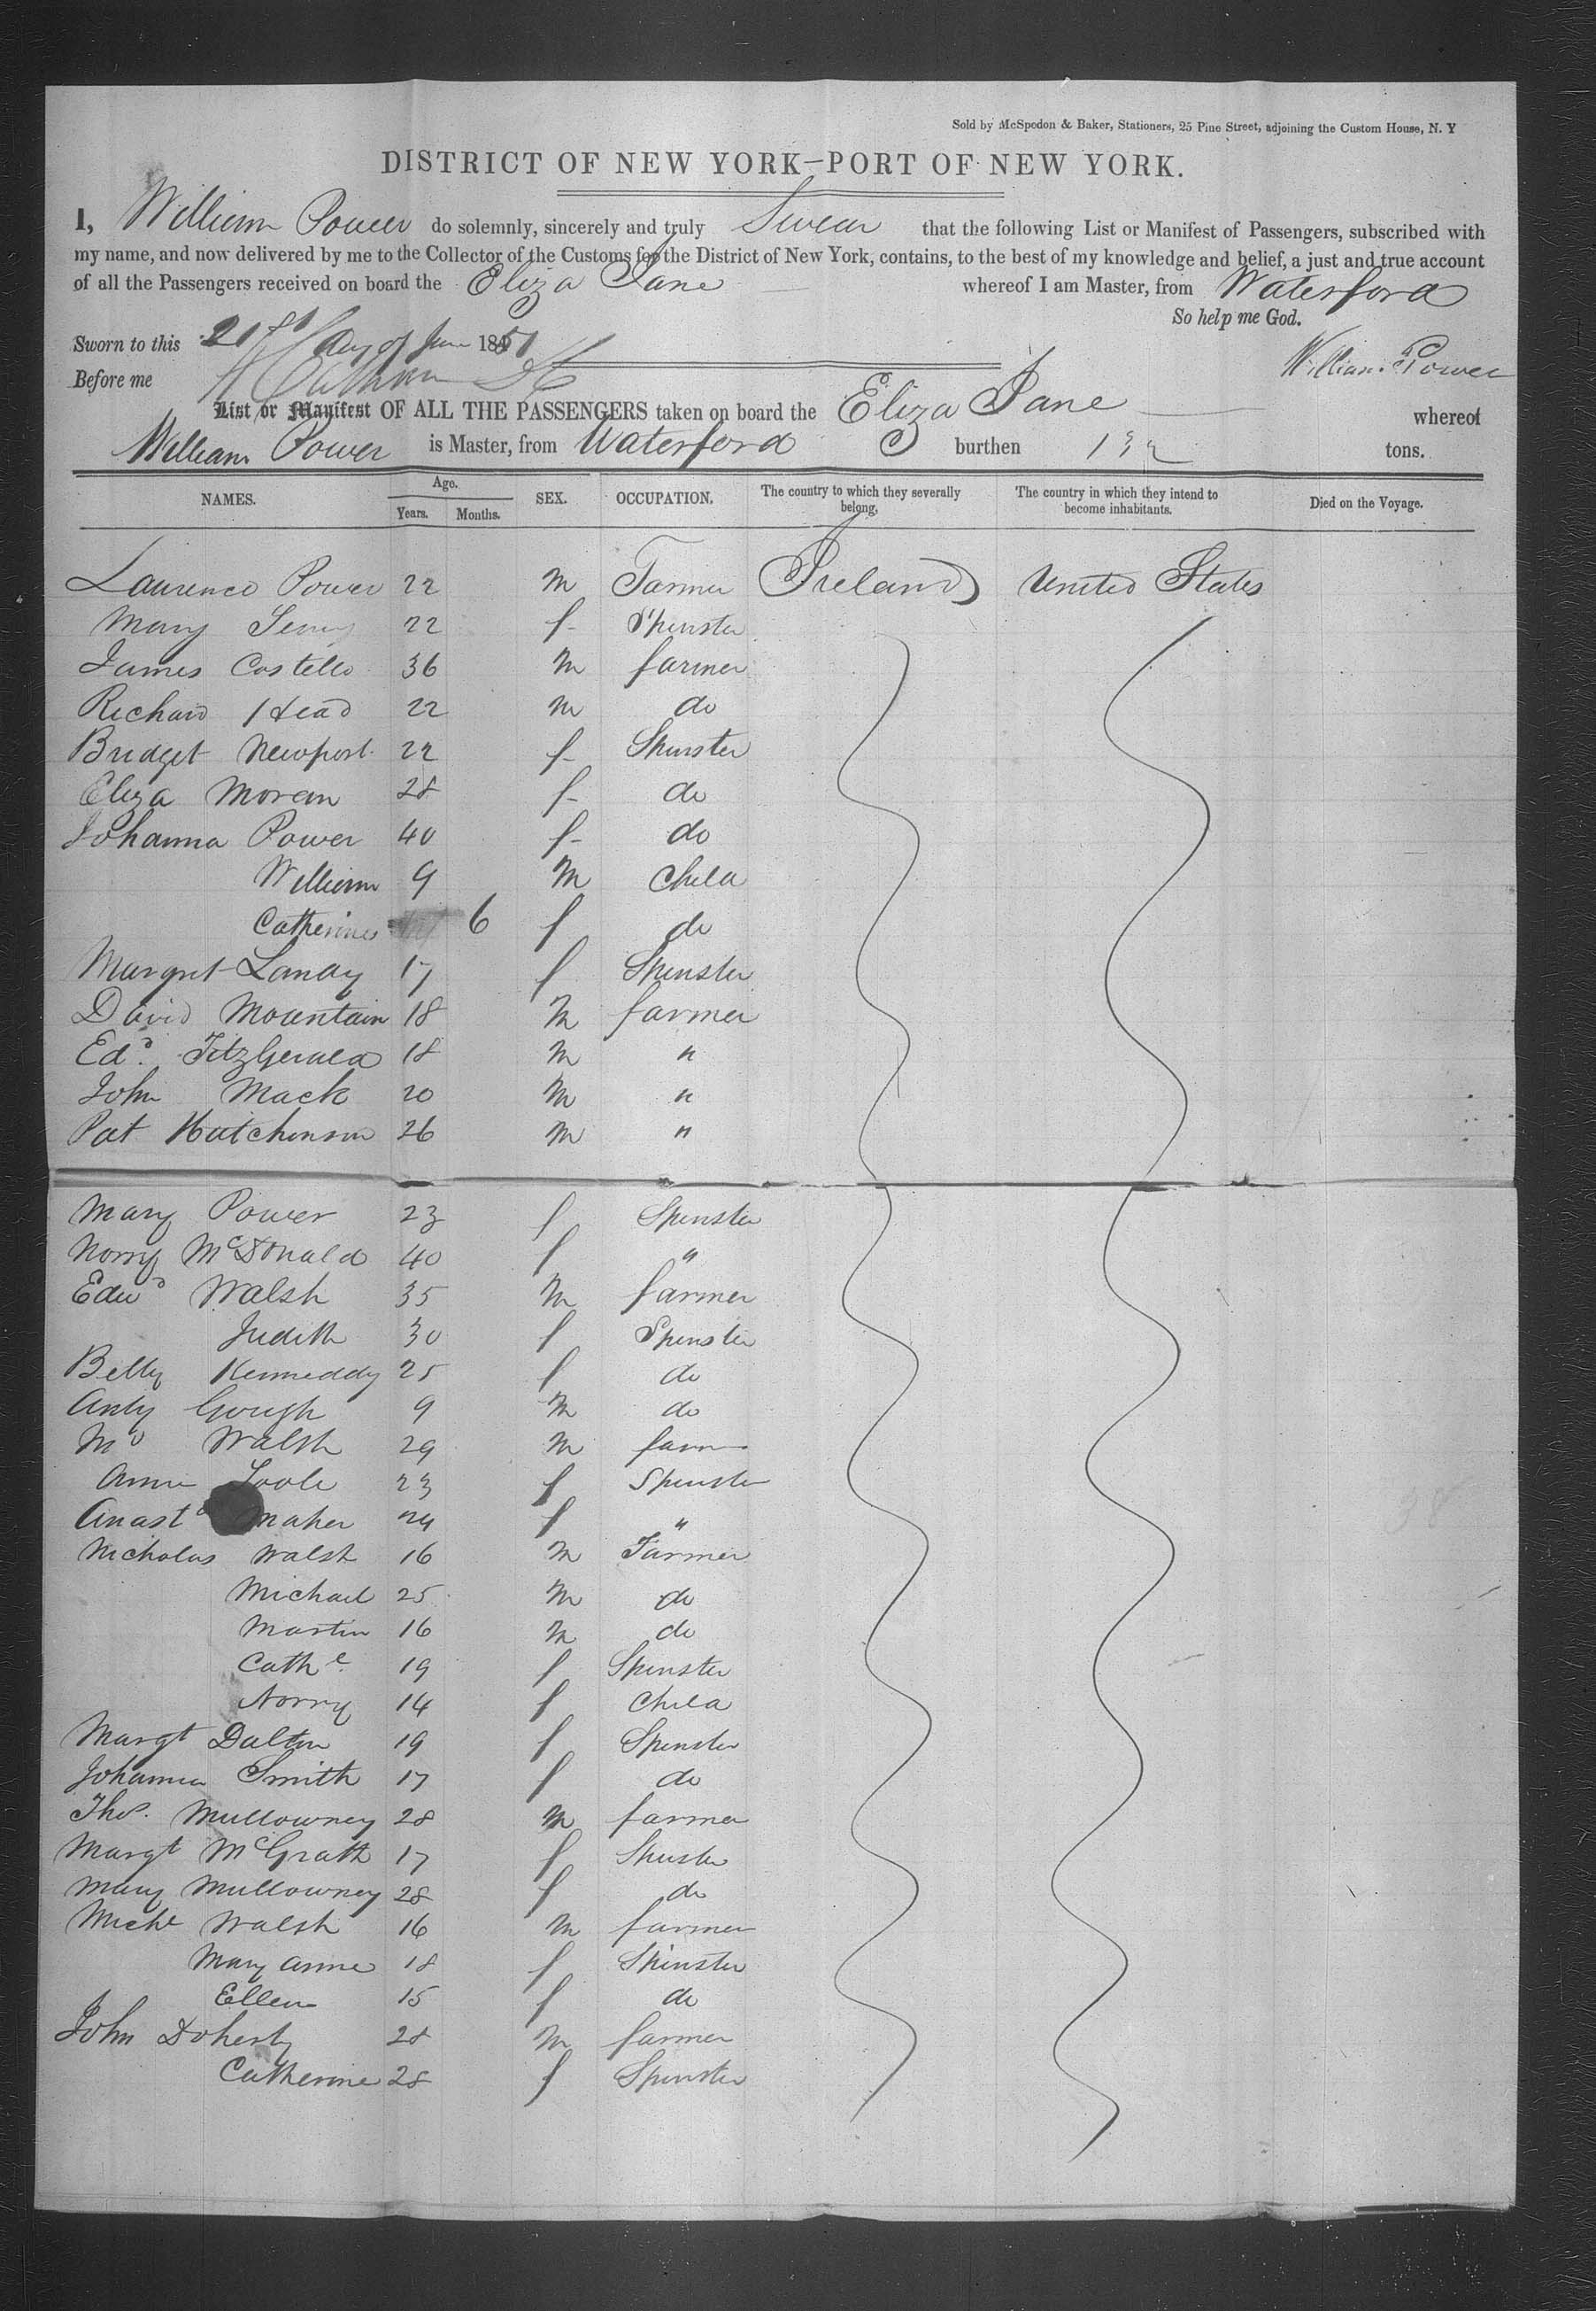 Sold by McSpedon & Baker, Stationers, 25 Pine Street, adjoining the Custom House, N. Y
DISTRICT OF NEW YORK—PORT OF NEW YORK.
I, William Power do solemnly, sincerely and truly Swear that the following List or Manifest of Passengers, subscribed with
my name, and now delivered by me to the Collector of the Customs for the District of New York, contains, to the best of my knowledge and belief, a just and true account
of all the Passengers received on board the Eliza Jane whereof I am Master, from Waterford
So help me God.
Sworn to this 21st day of June 1851
William Power
Before me
List or Manifest OF ALL THE PASSENGERS taken on board the Eliza Jane whereof
William Power is Master, from Waterford burthen 132 tons.
NAMES. Age. Years. Months. SEX. OCCUPATION. The country to which they severally belong. The country in which they intend to become inhabitants. Died on the Voyage.
Laurence Power 22 m Farmer Ireland United States
Mary 22 f Spinster
James Costello 36 m farmer
Richard Head 22 m do
Bridget Newport 22 f Spinster
Eliza Moran 28 f do
Johanna Power 40 f do
William 9 m Child
Catherine 6 f do
Margret Landy 17 f Spinster
David Mountain 18 m farmer
Edd. FitzGerald 18 m "
John Mack 20 m "
Pat Hutchinson 26 m "
Mary Power 23 f Spinster
Norry McDonald 40 f "
Edwd Walsh 35 m farmer
Judith 30 f Spinster
Betty Kenneddy 25 f do
Anty Gough 9 m do
Mo Walsh 29 m farm
Anne Toole 23 f Spinster
Anasta Maher 24 f "
Nicholas Walsh 16 m Farmer
Michael 25 m do
Martin 16 m do
Cathe. 19 f Spinster
Norry 14 f Child
Margt Dalton 19 f Spinster
Johanna Smith 17 f do
Thos. Mullowney 28 m farmer
Margt McGrath 17 f Spinster
Mary Mullowney 28 f do
Michl Walsh 16 m farmer
Mary Anne 18 f Spinster
Ellen 15 f do
John Doherty 28 m farmer
Catherine 28 f Spinster